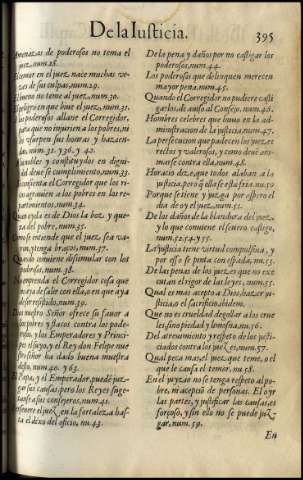 De la Iusticia. 395
Amenazas de poderosos no tema el
juez, num. 28.
El temor en el juez nace muchas ve-
zes de sus culpas, num. 29.
El bueno no teme al juez, num. 30.
El peligro en que biue el juez, num. 31.
poderosos allane el Corregidor,
para que no injurien a los pobres, ni
vsurpen sus honras y hazien-
das, num. 31. y 36. y 42.
nobles y constituydos en digni-
dad deue se cumplimiento, num. 33.
consienta el Corregidor que los ri-
cos arruinen a los pobres en los re-
partimientos, num. 34.
Quan oyda es de Dios la boz y que-
xa del pobre, num. 35.
Como se entiende que el juez sea va-
ron y tenga braços, num. 37.
Quando conuiene dissimular con los
poderosos, num. 38.
No reprenda el Corregidor cosa que
no aya de salir con ella, o en que aya
de ser resistido, num. 39.
Dios nuestro Señor ofrece su fauor a
los juezes y flacos contra los pode-
rosos, y los Emperadores y Princi-
pes el suyo, y el Rey don Felipe nue
stro señor ha dado buena muestra
dello, num. 40. y 63.
El Papa, y el Emperador, puede juz-
gar sus causas, pero los Reyes suge-
tanse a sus consejeros, num. 41.
el juez, en la fortaleza, has
ta el dexo del oficio, nu. 43.
De la pena y daños por no castigar los
poderosos, num. 44.
Los poderosos que delinquen merecen
mayor pena, num. 45.
Quando el Corregidor no pudiere casti
garlos, dè auiso al Consejo, num. 46.
Hombres celebres que huuo en la ad-
ministracion de la justicia, num. 47.
La persecucion que padecen los juezes
rectos y valerosos, y como deue ani-
marse contra ella, num. 48.
Horacio dize, que todos alaban a la
justicia, pero q̃ ella se està fria. nu. 50
Porque se tiene y juzga por aspero el
dia de oy el juez, num. 51.
De los daños de la blandura del juez,
y lo que conuiene el seuero castigo,
num. 52. 54. y 55.
La justicia tiene virtud compulsiua, y
por esso se pinta con espada, nu. 53.
De las penas de los juezes que no exe
cutan el rigor de las leyes, num. 55.
Qual es mas acepto a Dios, hazer ju-
sticia, o el sacrificio, ibidem.
Que no es crueldad degollar a los crue
les, sino piedad y limosna, nu. 56.
Del atreuimiento y respeto de los justi-
ciados contra los juezes, num. 57.
Qual peca mas, el juez, que teme, o el
que le causa el temor, nu. 58.
En el juyzio no se tenga respeto al po-
bre, ni acepciõ de personas. El oyr
las partes, y justificar las causas, es
forçoso, y sin ello no se puede juz-
gar, num. 59.
En